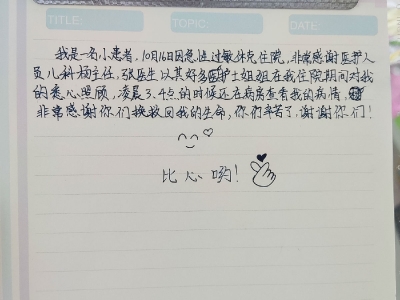 TITLE:
TOPIC:
DATE:
我是一名小患者,10月16日因急性过敏休克住院,非常感谢医护人
员儿科杨主任,张医生以其好多医护士姐姐在我住院期间对我
的悉心照顾,凌晨3、4点的时候还在病房查看我的病情,
非常感谢你们挽救回我的生命,你们辛苦了,谢谢你们!
比心哟!